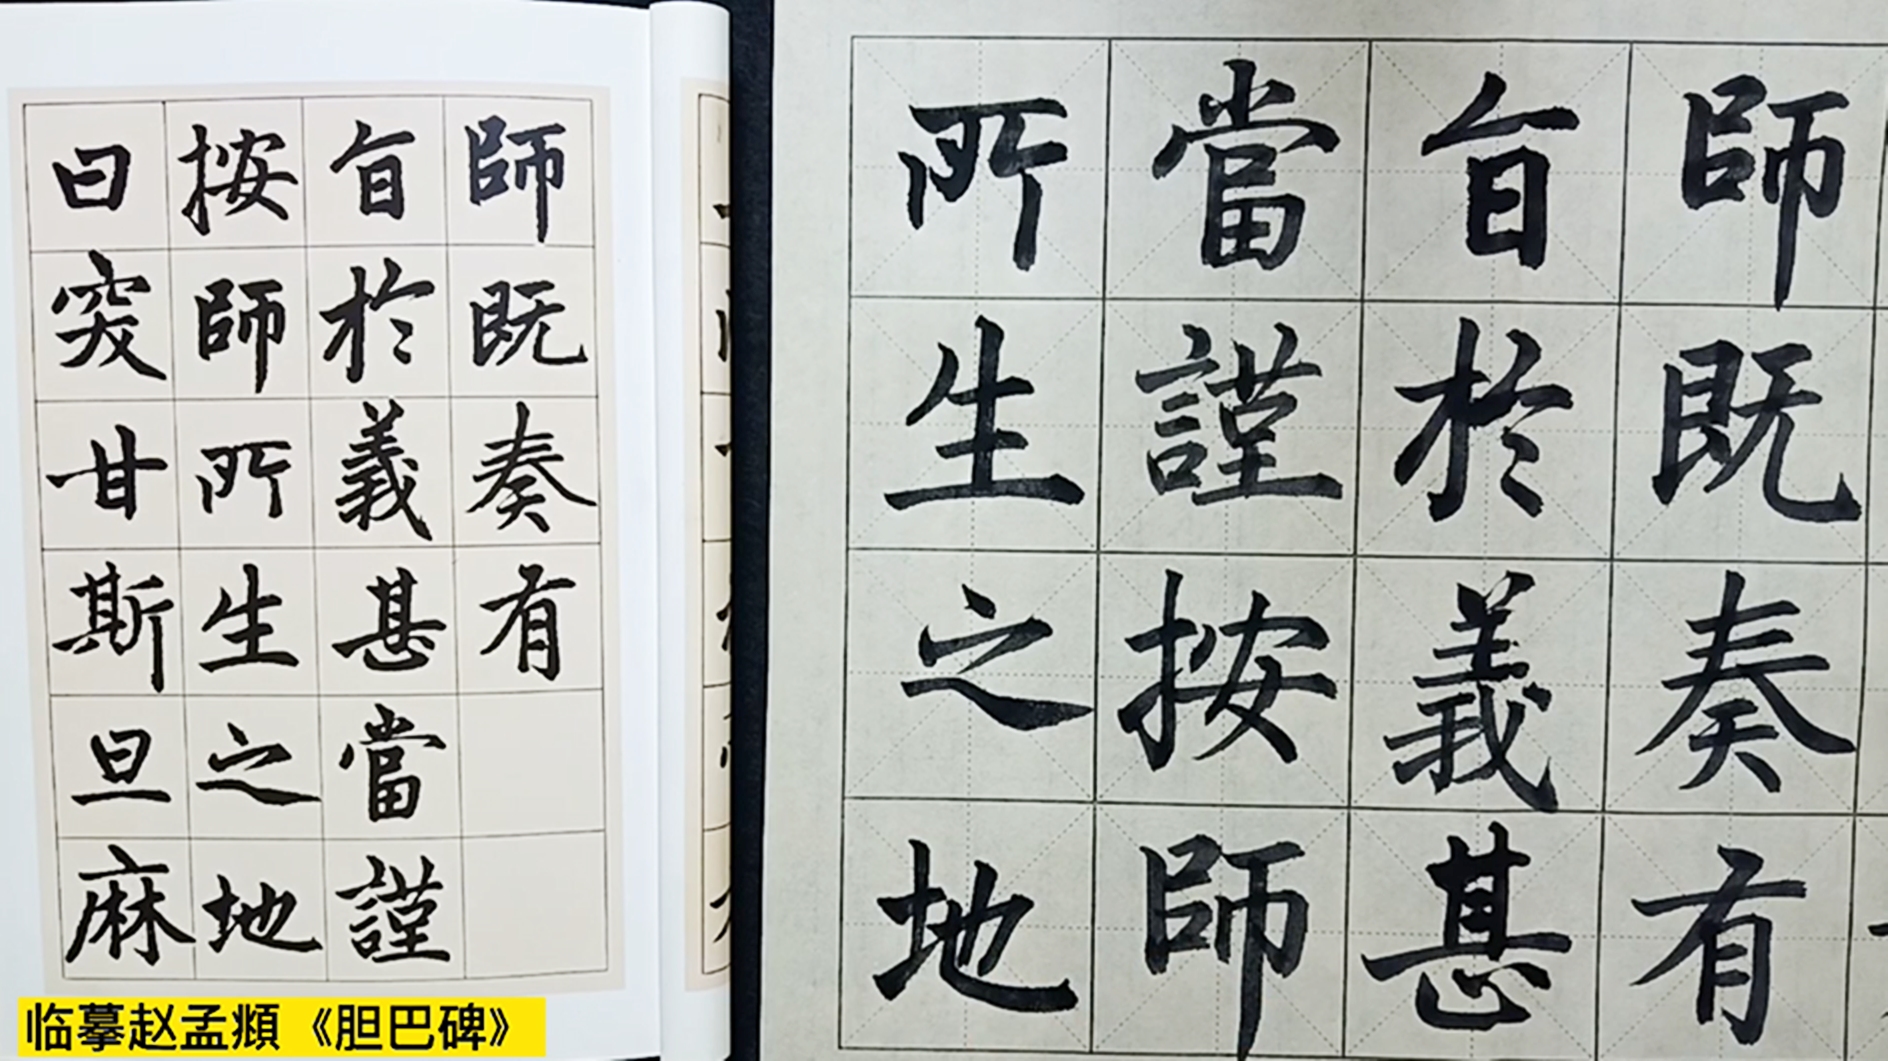 師既奏有
旨於義甚當謹
按師所生之地
曰突甘斯旦麻
師既奏有
旨於義甚
當謹按師
所生之地
临摹赵孟頫《胆巴碑》